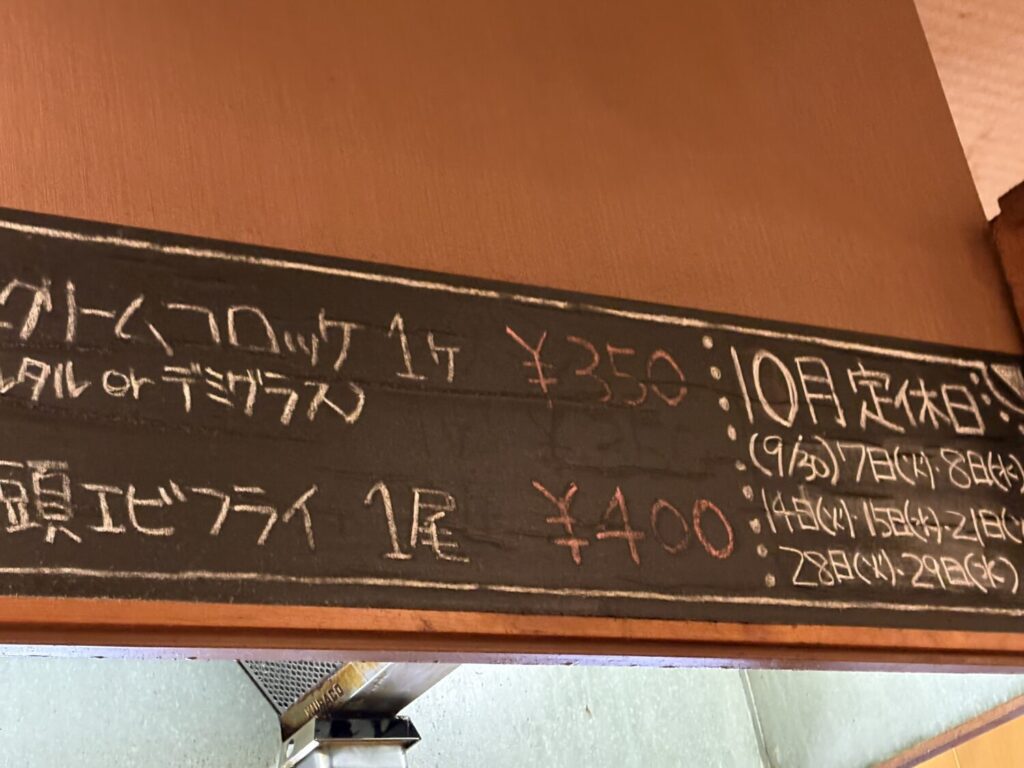 クリームコロッケ 1ヶ ¥350
タルタル or デミグラス
頭エビフライ 1尾 ¥400
10月 定休日
(9/30) 7日(火)・8日(水)
14日(火)・15日(水)・21日(火
28日(火)・29日(水)